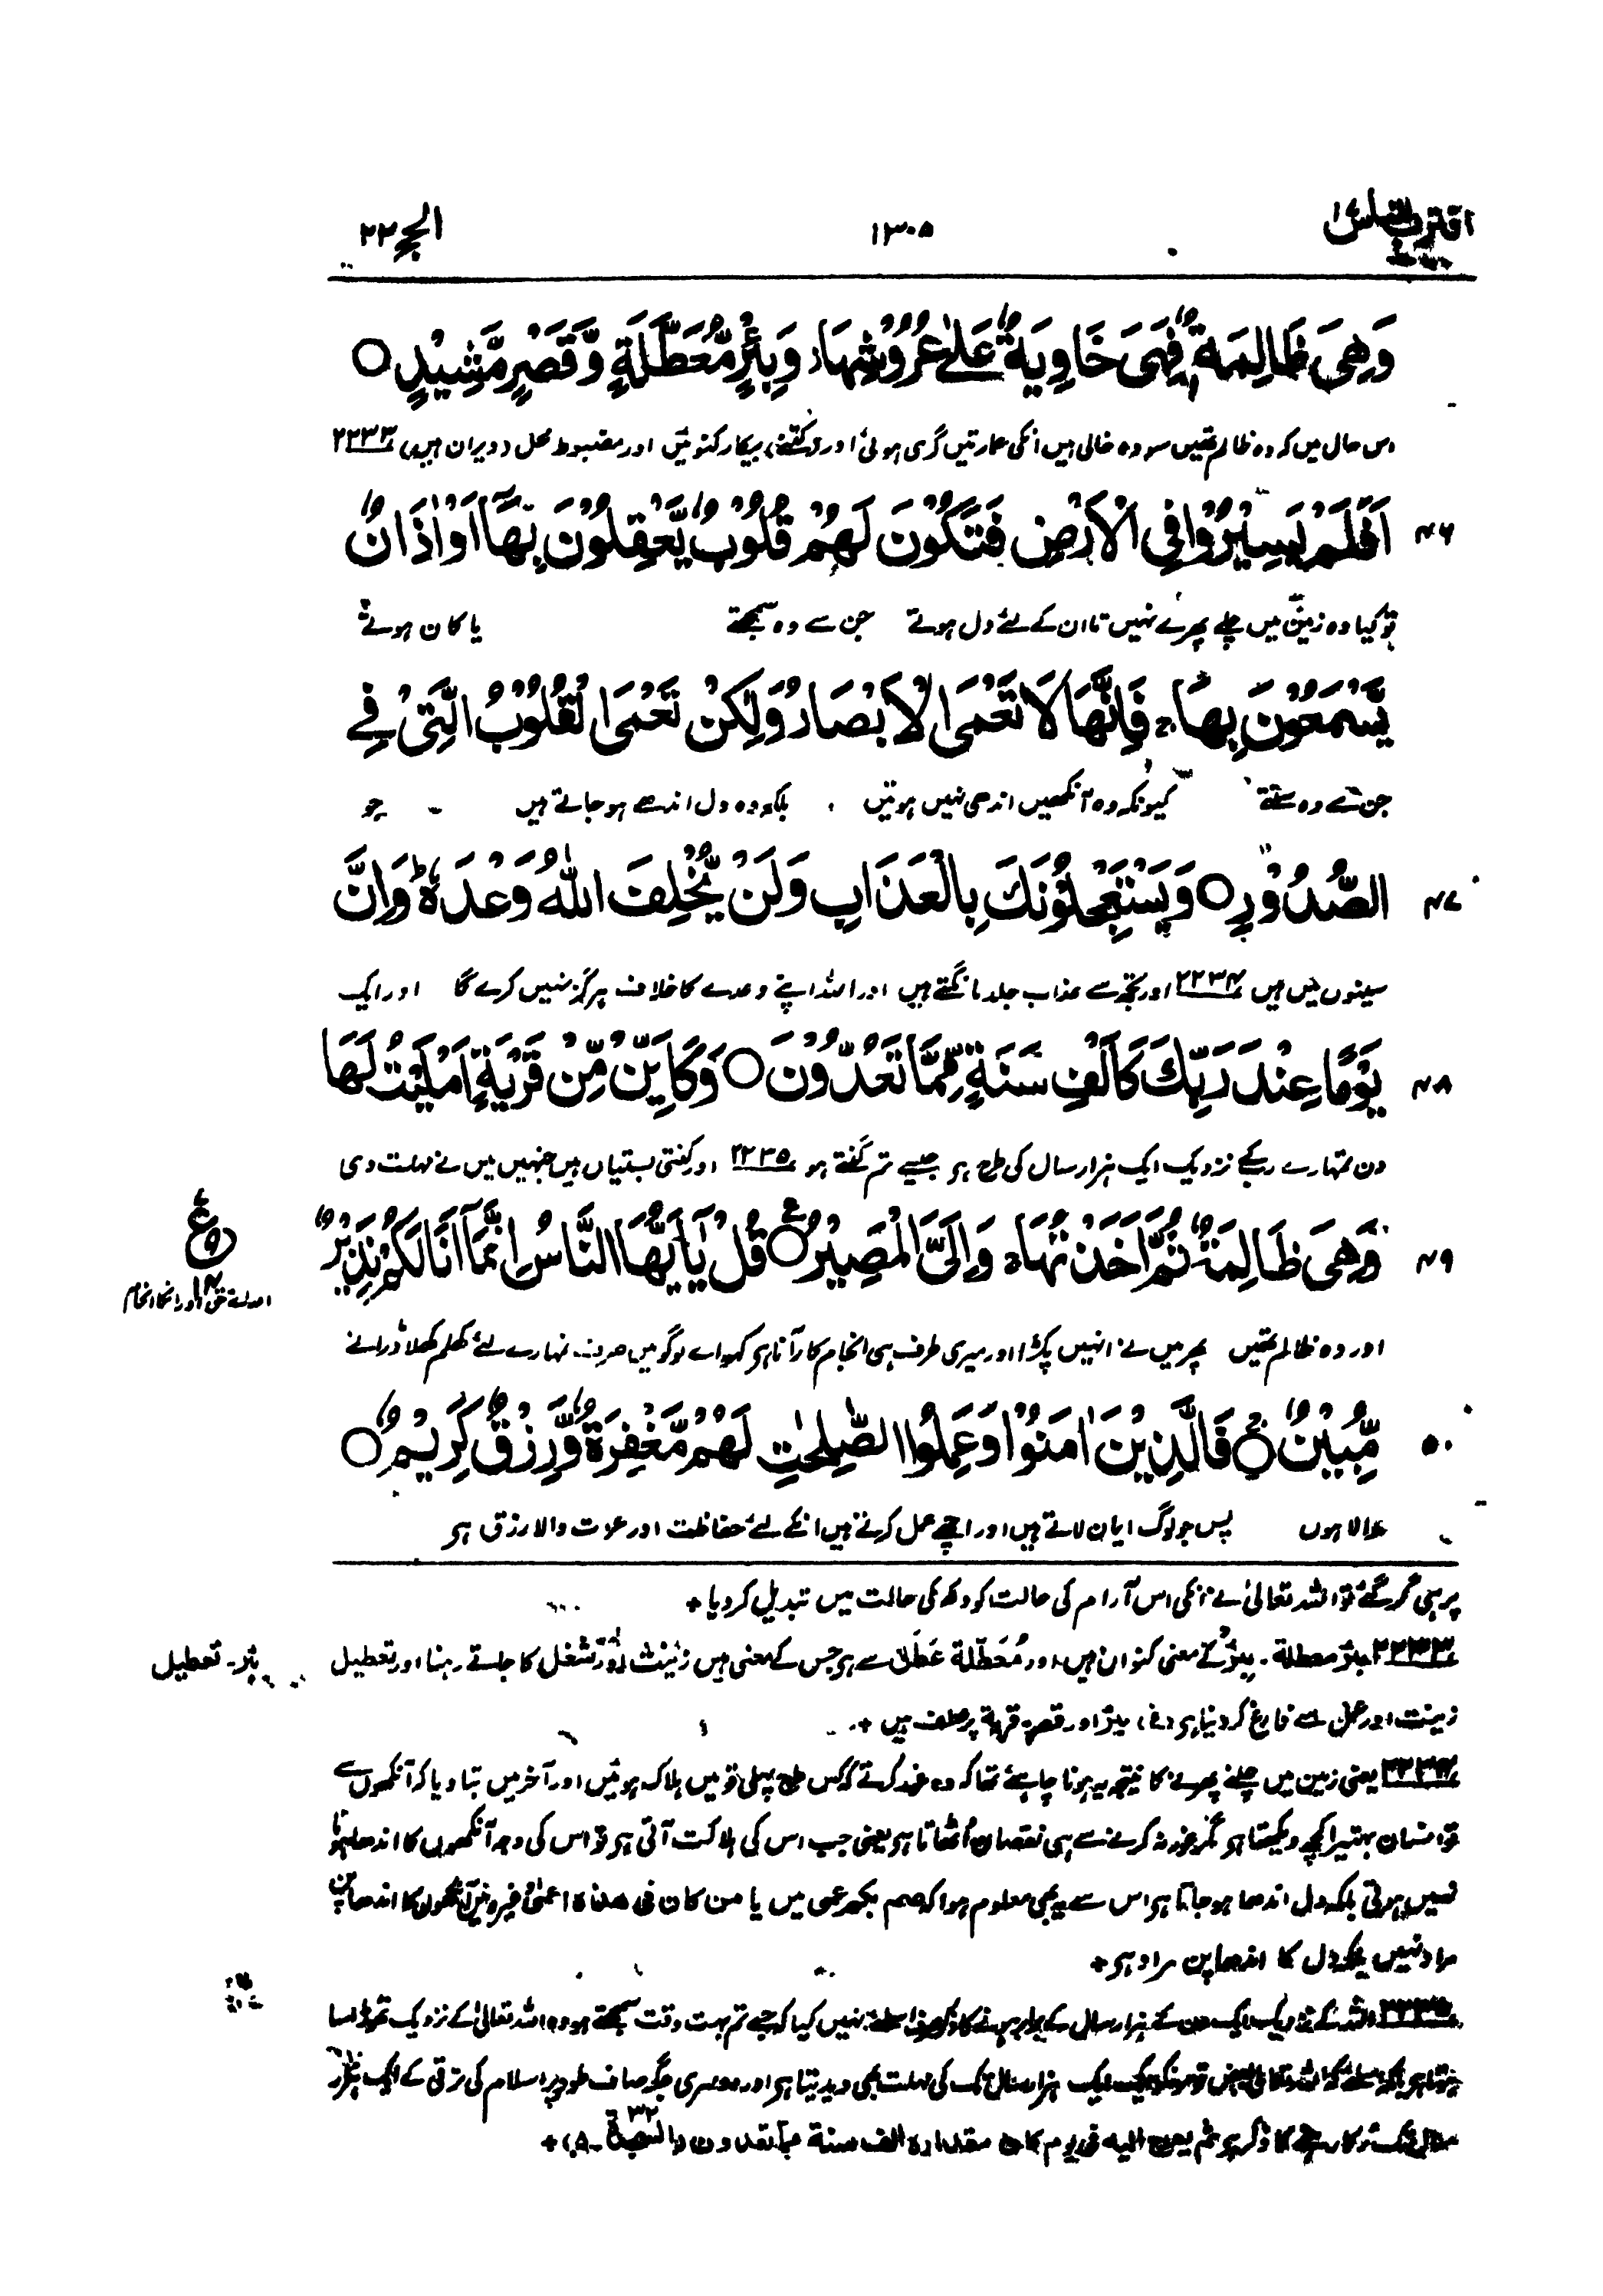 اقترب للناس ۱۷
۱۳۰۵
الحج ۲۲
وَهِيَ ظَالِمَةٌ فَهِيَ خَاوِيَةٌ عَلٰى عُرُوْشِهَا وَبِئْرٍ مُّعَطَّلَةٍ وَّقَصْرٍ مَّشِيْدٍ ○
اس حال میں کہ وہ ظالم تھیں سو وہ خالی ہیں انکی عمارتیں گری ہوئی اور (کتنے) بیکار کنوئیں اور مضبوط محل (ویران ہیں) ۲۲۳۳
۴۶ اَفَلَمْ يَسِيْرُوْا فِي الْاَرْضِ فَتَكُوْنَ لَهُمْ قُلُوْبٌ يَّعْقِلُوْنَ بِهَآ اَوْ اٰذَانٌ
تو کیا وہ زمین میں چلے پھرے نہیں تا ان کے لئے دل ہوتے جن سے وہ سمجھتے یا کان ہوتے
يَّسْمَعُوْنَ بِهَا ۚ فَاِنَّهَا لَا تَعْمَى الْاَبْصَارُ وَلٰكِنْ تَعْمَى الْقُلُوْبُ الَّتِيْ فِي
جن سے وہ سنتے کیونکہ وہ آنکھیں اندھی نہیں ہوتیں بلکہ وہ دل اندھے ہو جاتے ہیں جو
۴۷ الصُّدُوْرِ ○ وَيَسْتَعْجِلُوْنَكَ بِالْعَذَابِ وَلَنْ يُّخْلِفَ اللّٰهُ وَعْدَهٗ ؕ وَاِنَّ
سینوں میں ہیں ۲۲۳۴ اور تجھ سے عذاب جلد مانگتے ہیں اور اللہ اپنے وعدے کا خلاف ہرگز نہیں کرے گا اور ایک
۴۸ يَوْمًا عِنْدَ رَبِّكَ كَاَلْفِ سَنَةٍ مِّمَّا تَعُدُّوْنَ ○ وَكَاَيِّنْ مِّنْ قَرْيَةٍ اَمْلَيْتُ لَهَا
دن تمہارے رب کے نزدیک ایک ہزار سال کی طرح ہر جسے تم گنتے ہو ۲۲۳۵ اور کتنی بستیاں ہیں جنہیں میں نے مہلت دی
۴۹ وَهِيَ ظَالِمَةٌ ثُمَّ اَخَذْتُهَا ۚ وَاِلَيَّ الْمَصِيْرُ ○ قُلْ يٰٓاَيُّهَا النَّاسُ اِنَّمَآ اَنَا لَكُمْ نَذِيْرٌ
ع
انکا انجام
اور وہ ظالم تھیں پھر میں نے انہیں پکڑا اور میری طرف ہی انجام کار آنا ہر کہو اے لوگو میں صرف تمہارے لئے کھلم کھلا ڈرانے
۵۰ مُّبِيْنٌ ○ فَالَّذِيْنَ اٰمَنُوْا وَعَمِلُوا الصّٰلِحٰتِ لَهُمْ مَّغْفِرَةٌ وَّرِزْقٌ كَرِيْمٌ ○
والا ہوں پس جو لوگ ایمان لاتے ہیں اور اچھے عمل کرتے ہیں انکے لئے حفاظت اور عزت والا رزق ہر
پر ہی گر گئے تو اللہ تعالیٰ نے انکی اس آرام کی حالت کو دکھ کی حالت میں تبدیل کر دیا +
۲۲۳۳ بئر معطلة۔ بئر کے معنی کنواں ہیں۔ اور مُعَطّلة عَطَل سے ہر جس کے معنی ہیں زینت اور شغل کا جاتے رہنا اور تعطیل
بئر۔ تعطیل
زینت اور عمل سے فارغ کر دینا ہر (غ) بئر اور قصر قریة پر عطف ہیں +
۲۲۳۴ یعنی زمین میں چلنے پھرنے کا نتیجہ یہ ہونا چاہیئے تھا کہ وہ غور کرتے کہ کس طرح پہلی قومیں ہلاک ہوئیں اور آخر میں بتا دیا کہ آنکھوں سے
تو انسان بہتیرا کچھ دیکھتا ہر مگر غور نہ کرنے سے ہی نقصان اُٹھاتا ہر یعنی جب اس کی ہلاکت آتی ہر تو اس کی وجہ آنکھوں کا اندھا ہونا
نہیں ہوتی بلکہ دل اندھا ہو جاتا ہر اس سے یہ بھی معلوم ہوا کہ صم بکم عمی میں یا من کان فی ھذہ اعمیٰ وغیرہ میں آنکھوں کا اندھا پن
مراد نہیں بلکہ دل کا اندھا پن مراد ہر +
۲۲۳۵ اللہ کے نزدیک ایک دن کے ہزار سال کے برابر ہونے کا ذکر صرف اسلئے نہیں کیا کہ جسے تم بہت وقت سمجھتے ہو وہ اللہ تعالیٰ کے نزدیک تھوڑا سا
ایک ہزار سال تک کی مہلت بھی دیدیتا ہر اور دوسری جگہ صاف طور پر اسلام کی ترقی کے ایک ہزار
سال تک رُکا رہنے کا ذکر ہر ثم یعرج الیہ فی یوم کان مقدارہ الف سنة مما تعدون (السجدة ۳۲-۵) +